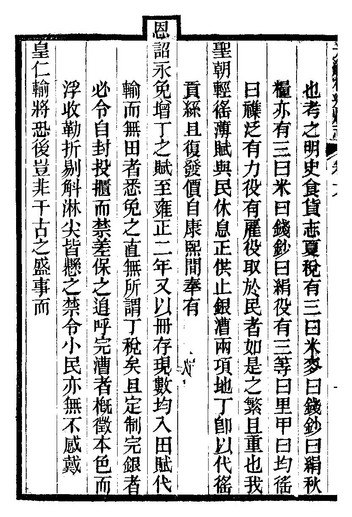 也考之明史食貨志夏稅有三曰米麥曰錢鈔曰絹秋
糧亦有三曰米曰錢鈔曰絹役有三等曰里甲曰均徭
曰襍泛有力役有雇役取於民者如是之繁且重也我
聖朝輕徭薄賦與民休息正供止銀漕兩項地丁卽以代徭
貢絲且復發價自康熙間奉有
恩詔永免增丁之賦至雍正二年又以冊存現數均入田賦代
輸而無田者悉免之直無所謂丁稅矣且定制完銀者
必令自封投櫃而禁差保之追呼完漕者槪徵本色而
浮收勒折剔斛淋尖皆懸之禁令小民亦無不感戴
皇仁輸將恐後豈非千古之盛事而